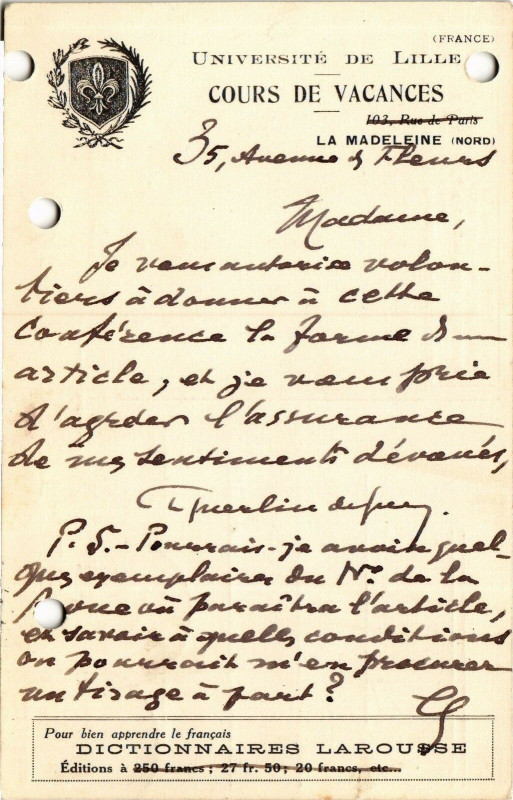 (FRANCE)
UNIVERSITÉ DE LILLE
COURS DE VACANCES
103, Rue de Paris
LA MADELEINE (NORD)
35, Avenue des Fleurs
Madame,
Je vous autorise volon-
tiers à donner à cette
Conférence la forme d'un
article, et je vous prie
d'agréer l'assurance
de mes sentiments dévoués,
P.S. - Pourrais-je avoir quel-
ques exemplaires du No. de la
Revue où paraîtra l'article,
et savoir à quelles conditions
on pourrait m'en procurer
un tirage à part?
Pour bien apprendre le français
DICTIONNAIRES LAROUSSE
Éditions à 250 francs ; 27 fr. 50 ; 20 francs, etc...